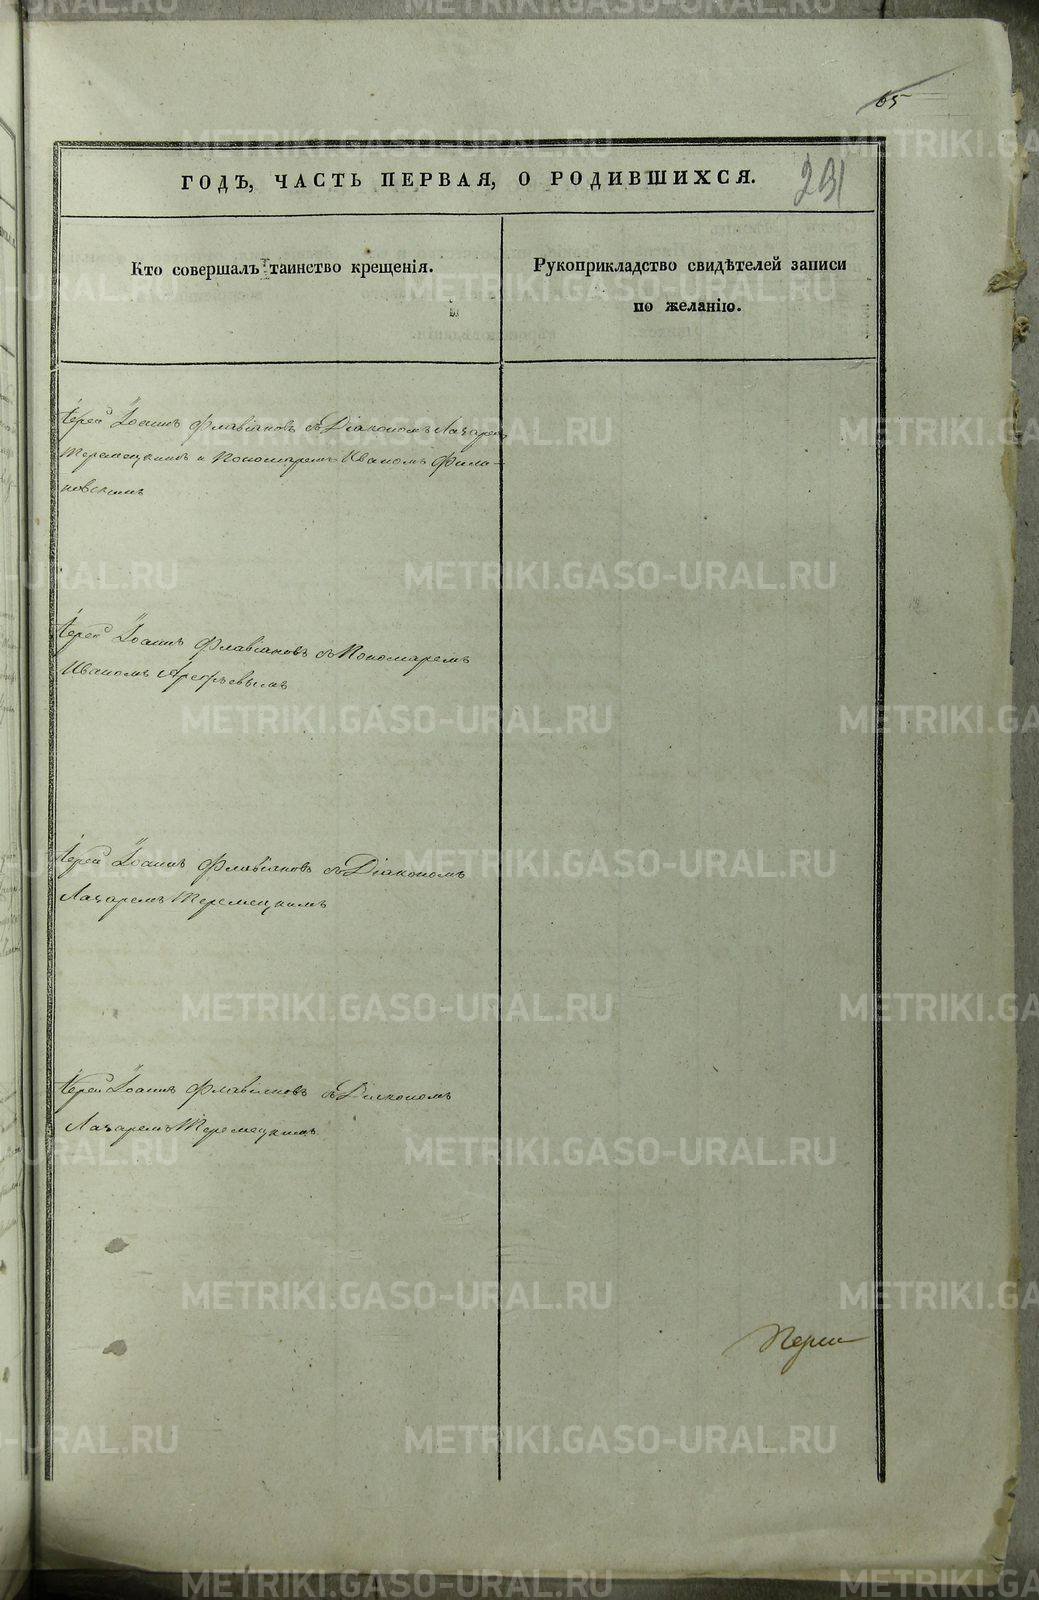 65
231
ГОДЪ, ЧАСТЬ ПЕРВАЯ, О РОДИВШИХСЯ.
Кто совершалъ таинство крещенія.
Рукоприкладство свидѣтелей записи
по желанію.
Іерей Іоаннъ Флавіановъ съ Діакономъ Лазаремъ
Теремецкимъ и Пономаремъ Иваномъ
Іерей Іоаннъ Флавіановъ съ Пономаремъ
Иваномъ Арефьевымъ
Іерей Іоаннъ Флавіановъ съ Діакономъ
Лазаремъ Теремецкимъ
Іерей Іоаннъ Флавіановъ съ Діакономъ
Лазаремъ Теремецкимъ
METRIKI.GASO-URAL.RU